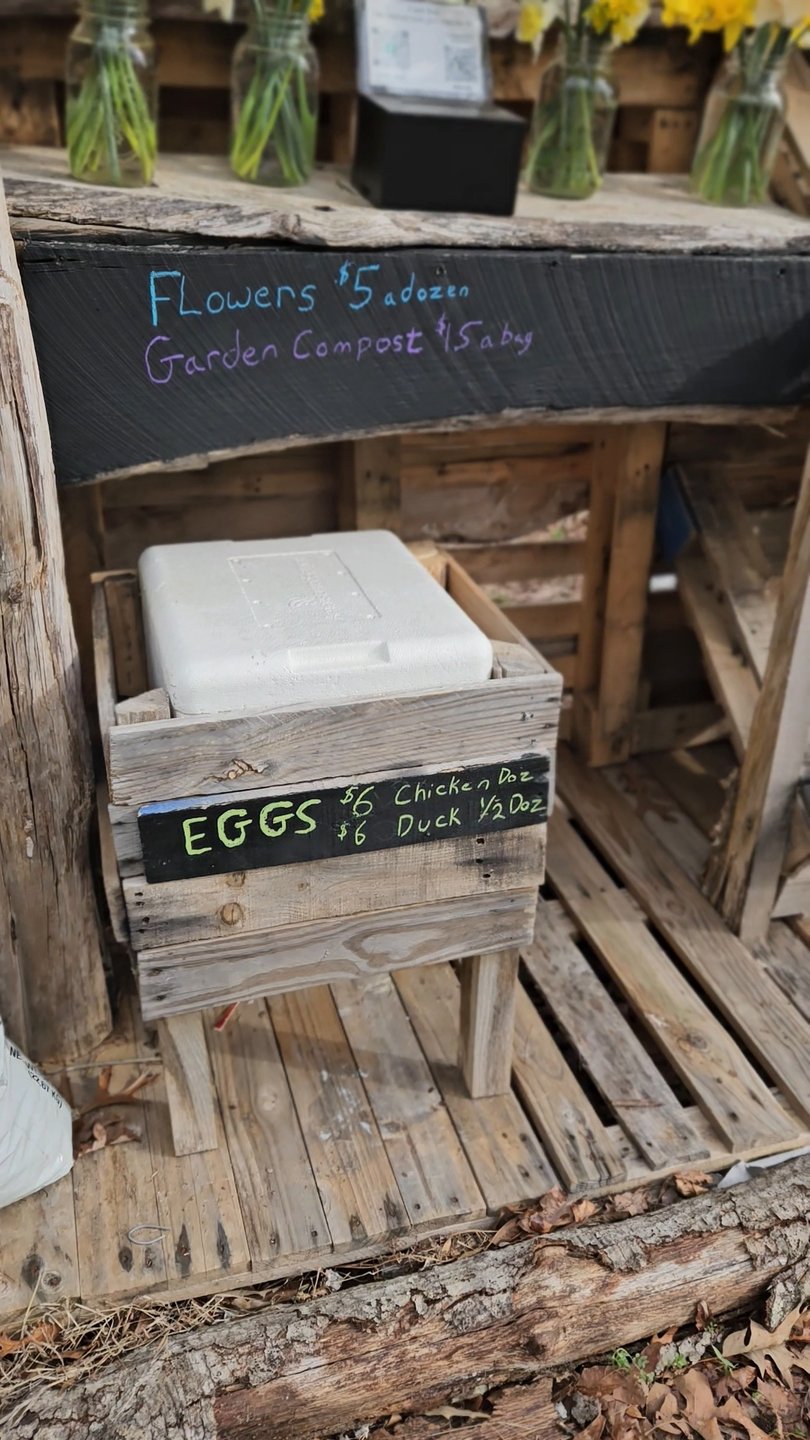 Flowers $5 a dozen
Garden Compost $15 a bag
EGGS $6 Chicken Doz
$6 Duck 1/2 Doz